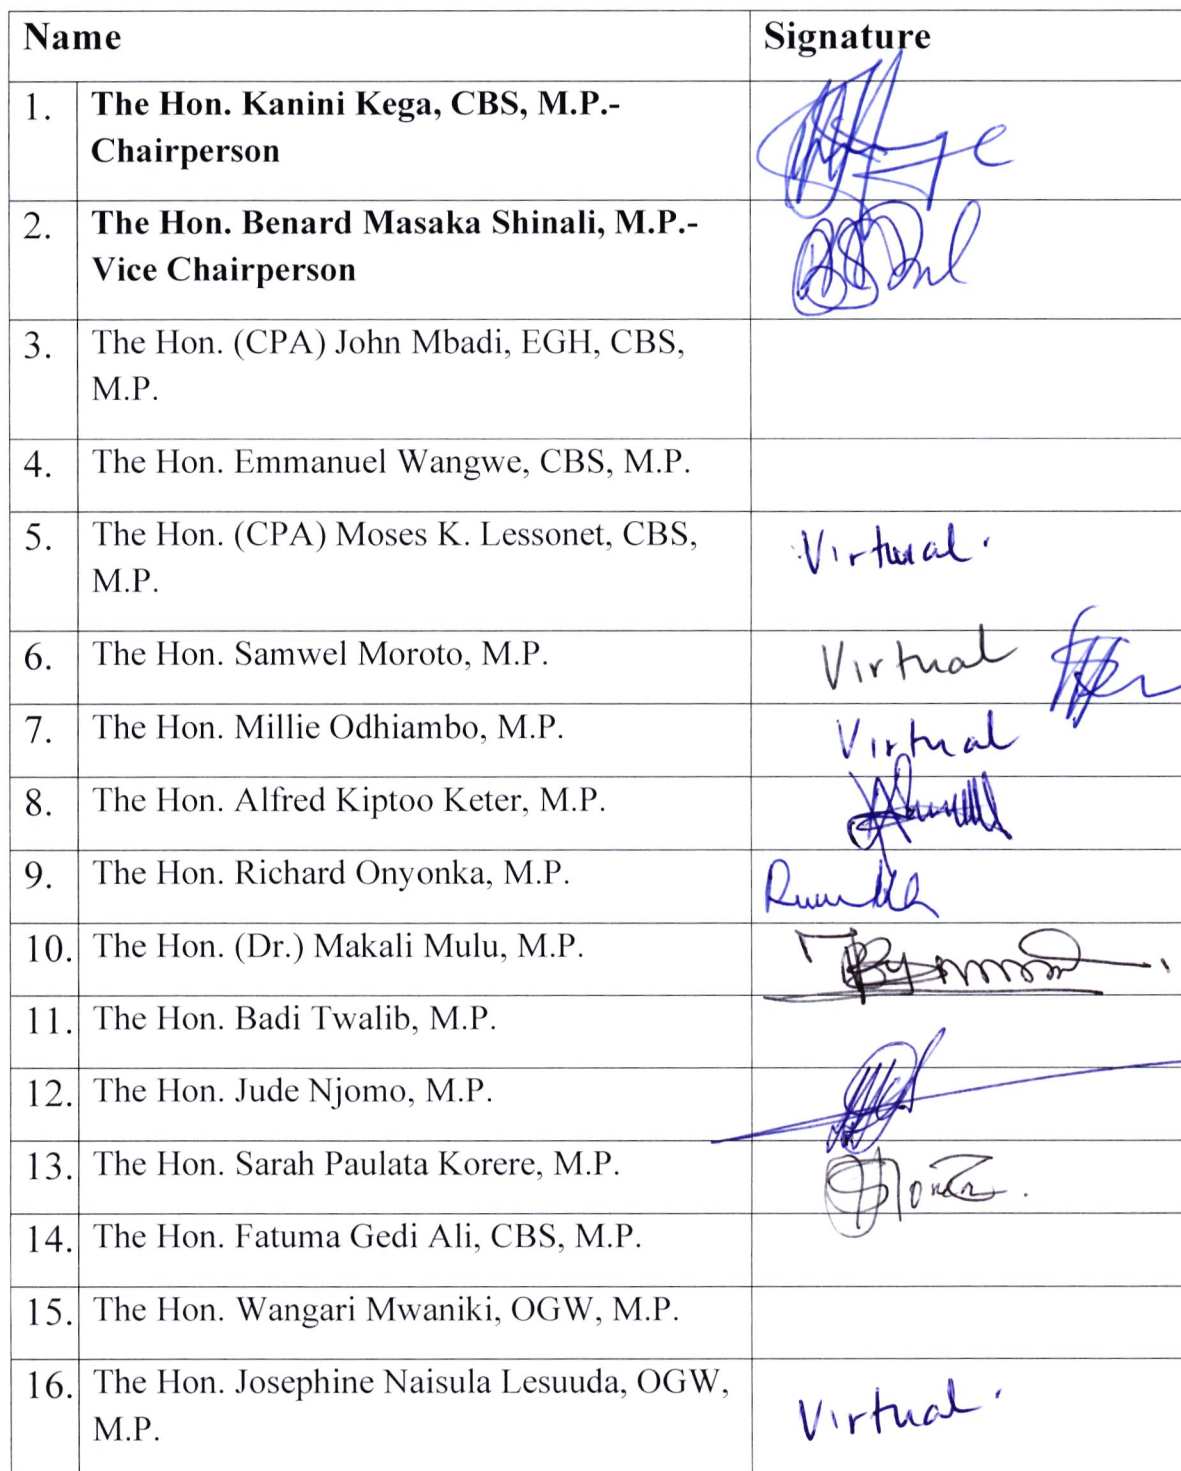 Name Signature
1. The Hon. Kanini Kega, CBS, M.P.-
Chairperson
2. The Hon. Benard Masaka Shinali, M.P.-
Vice Chairperson
3. The Hon. (CPA) John Mbadi, EGH, CBS,
M.P.
4. The Hon. Emmanuel Wangwe, CBS, M.P.
5. The Hon. (CPA) Moses K. Lessonet, CBS, Virtual.
M.P.
6. The Hon. Samwel Moroto, M.P. Virtual
7. The Hon. Millie Odhiambo, M.P. Virtual
8. The Hon. Alfred Kiptoo Keter, M.P.
9. The Hon. Richard Onyonka, M.P.
10. The Hon. (Dr.) Makali Mulu, M.P.
11. The Hon. Badi Twalib, M.P.
12. The Hon. Jude Njomo, M.P.
13. The Hon. Sarah Paulata Korere, M.P.
14. The Hon. Fatuma Gedi Ali, CBS, M.P.
15. The Hon. Wangari Mwaniki, OGW, M.P.
16. The Hon. Josephine Naisula Lesuuda, OGW, Virtual.
M.P.